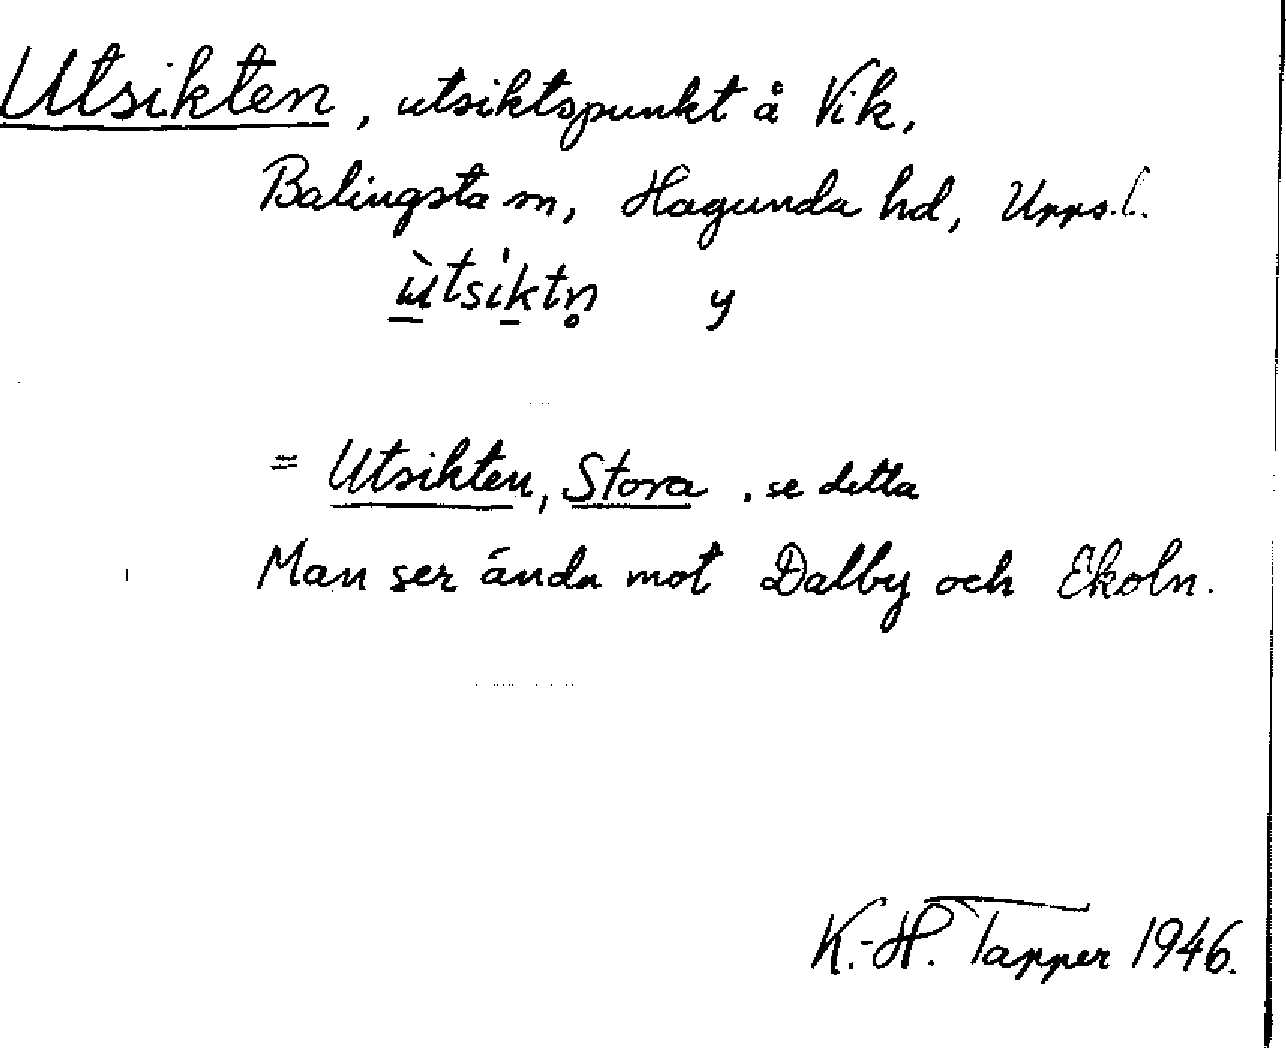 Utsikten, utsiktspunkt å Vik,
Balingsta sn, Hagunda hd, Upps. l.
ùtsi̍ktn̥ y
= Utsikten, Stora, se detta
Man ser ända mot Dalby och Ekoln.
K.-H. Tapper 1946.